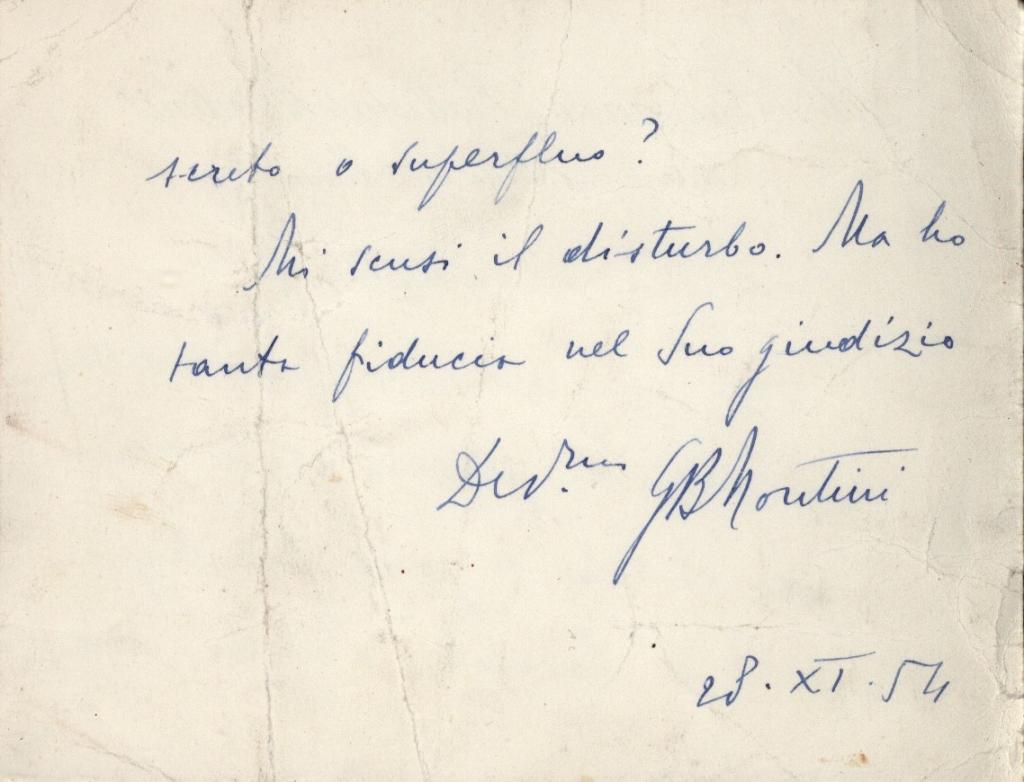 sereto o superfluo?
Mi scusi il disturbo. Ma ho
tanta fiducia nel Suo giudizio
Dev.mo GBMontini
28. XI. 54